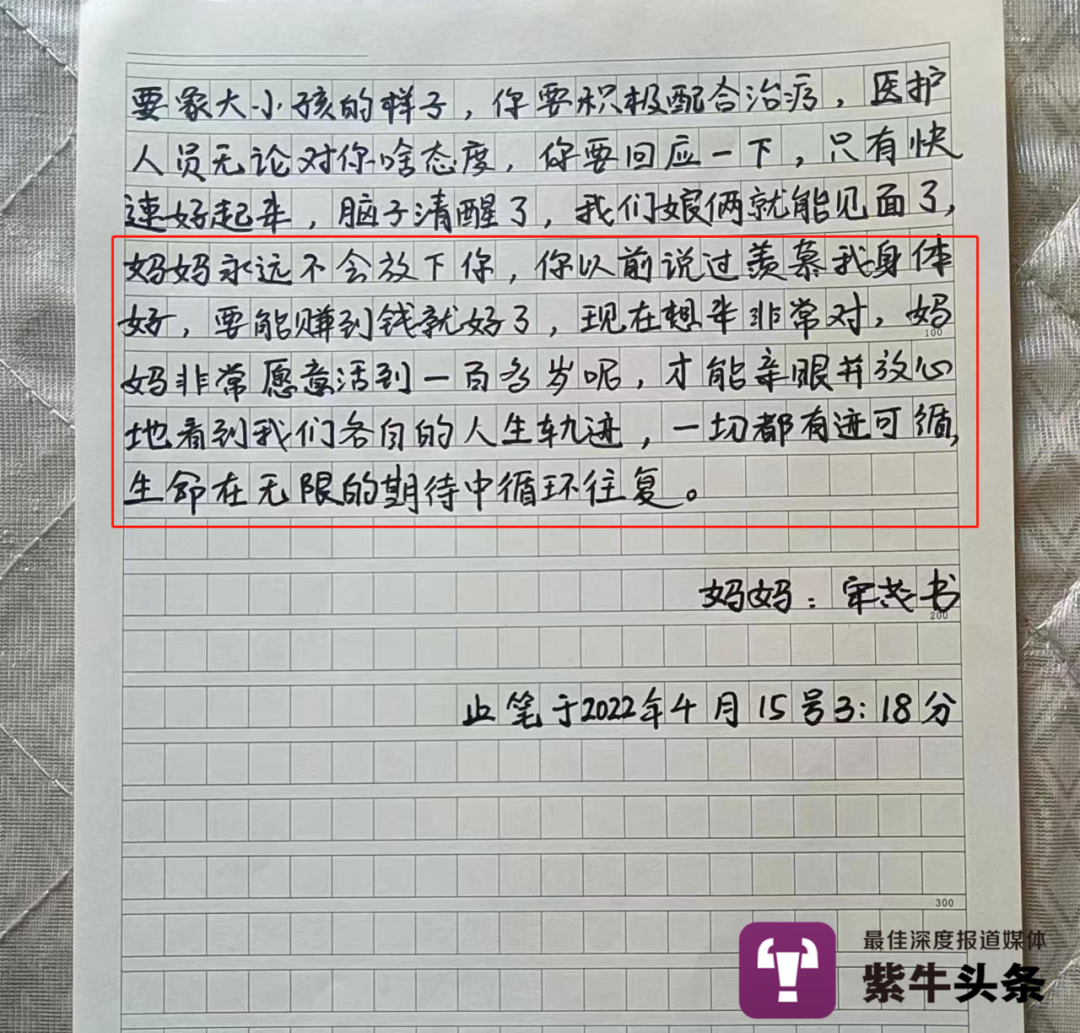 要象大小孩的样子，你要积极配合治疗，医护
人员无论对你啥态度，你要回应一下，只有快
速好起来，脑子清醒了，我们娘俩就能见面了，
妈妈永远不会放下你，你以前说过羡慕我身体
好，要能赚到钱就好了，现在想来非常对，妈
100
妈非常愿意活到一百多岁呢，才能亲眼并放心
地看到我们各自的人生轨迹，一切都有迹可循，
生命在无限的期待中循环往复。
妈妈：宋 书
200
止笔于2022年4月15号3:18分
300
最佳深度报道媒体
紫牛头条